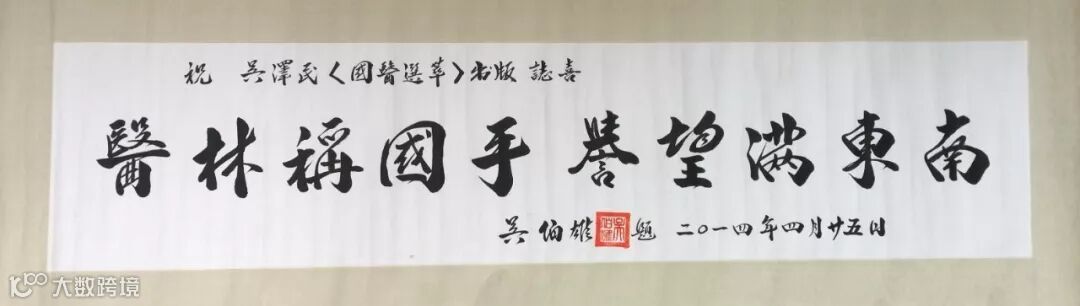 祝 吳澤民〈國醫選萃〉出版 誌喜
醫林稱國手譽望滿東南
吳伯雄 吳伯雄 題 二〇一四年四月廿五日
大数跨境